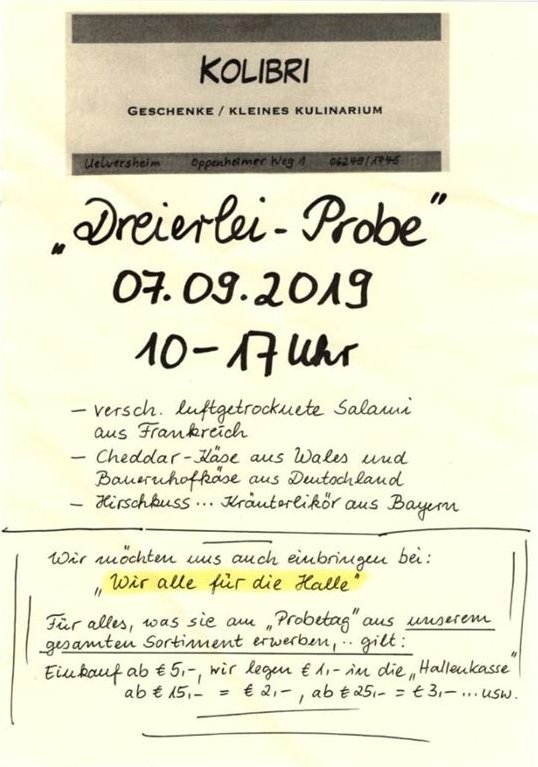 KOLIBRI
GESCHENKE / KLEINES KULINARIUM
Uelversheim Oppenheimer Weg 1 06249/1746
„Dreierlei-Probe"
07.09.2019
10-17 Uhr
- versch. luftgetrocknete Salami
aus Frankreich
- Cheddar-Käse aus Wales und
Bauernhofkäse aus Deutschland
- Hirschkuss... Kräuterlikör aus Bayern
Wir möchten uns auch einbringen bei:
„Wir alle für die Halle"
Für alles, was sie am „Probetag" aus unserem
gesamten Sortiment erwerben,.. gilt:
Einkauf ab € 5,-, wir legen € 1,- in die „Hallenkasse"
ab € 15,- = € 2,-, ab € 25,- = € 3,- ... usw.